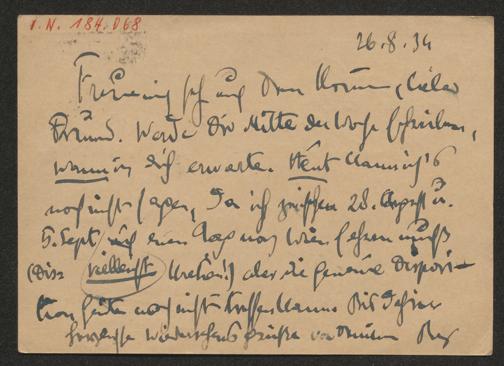 I.N. 184.068
26.8.34
Freue mich sehr auf Dein Kommen, lieber
Freund. Werde Dir Mitte der Woche schreiben,
wann ich Dich erwarte. Heut kann ich's
noch nicht sagen, da ich zwischen 28. August u.
5. Sept. auf einen Tag nach Wien fahren muß
(Dir vielleicht
) aber die genaue Disposi-
tion heute noch nicht treffen kann. Bis dahin
herzlichste